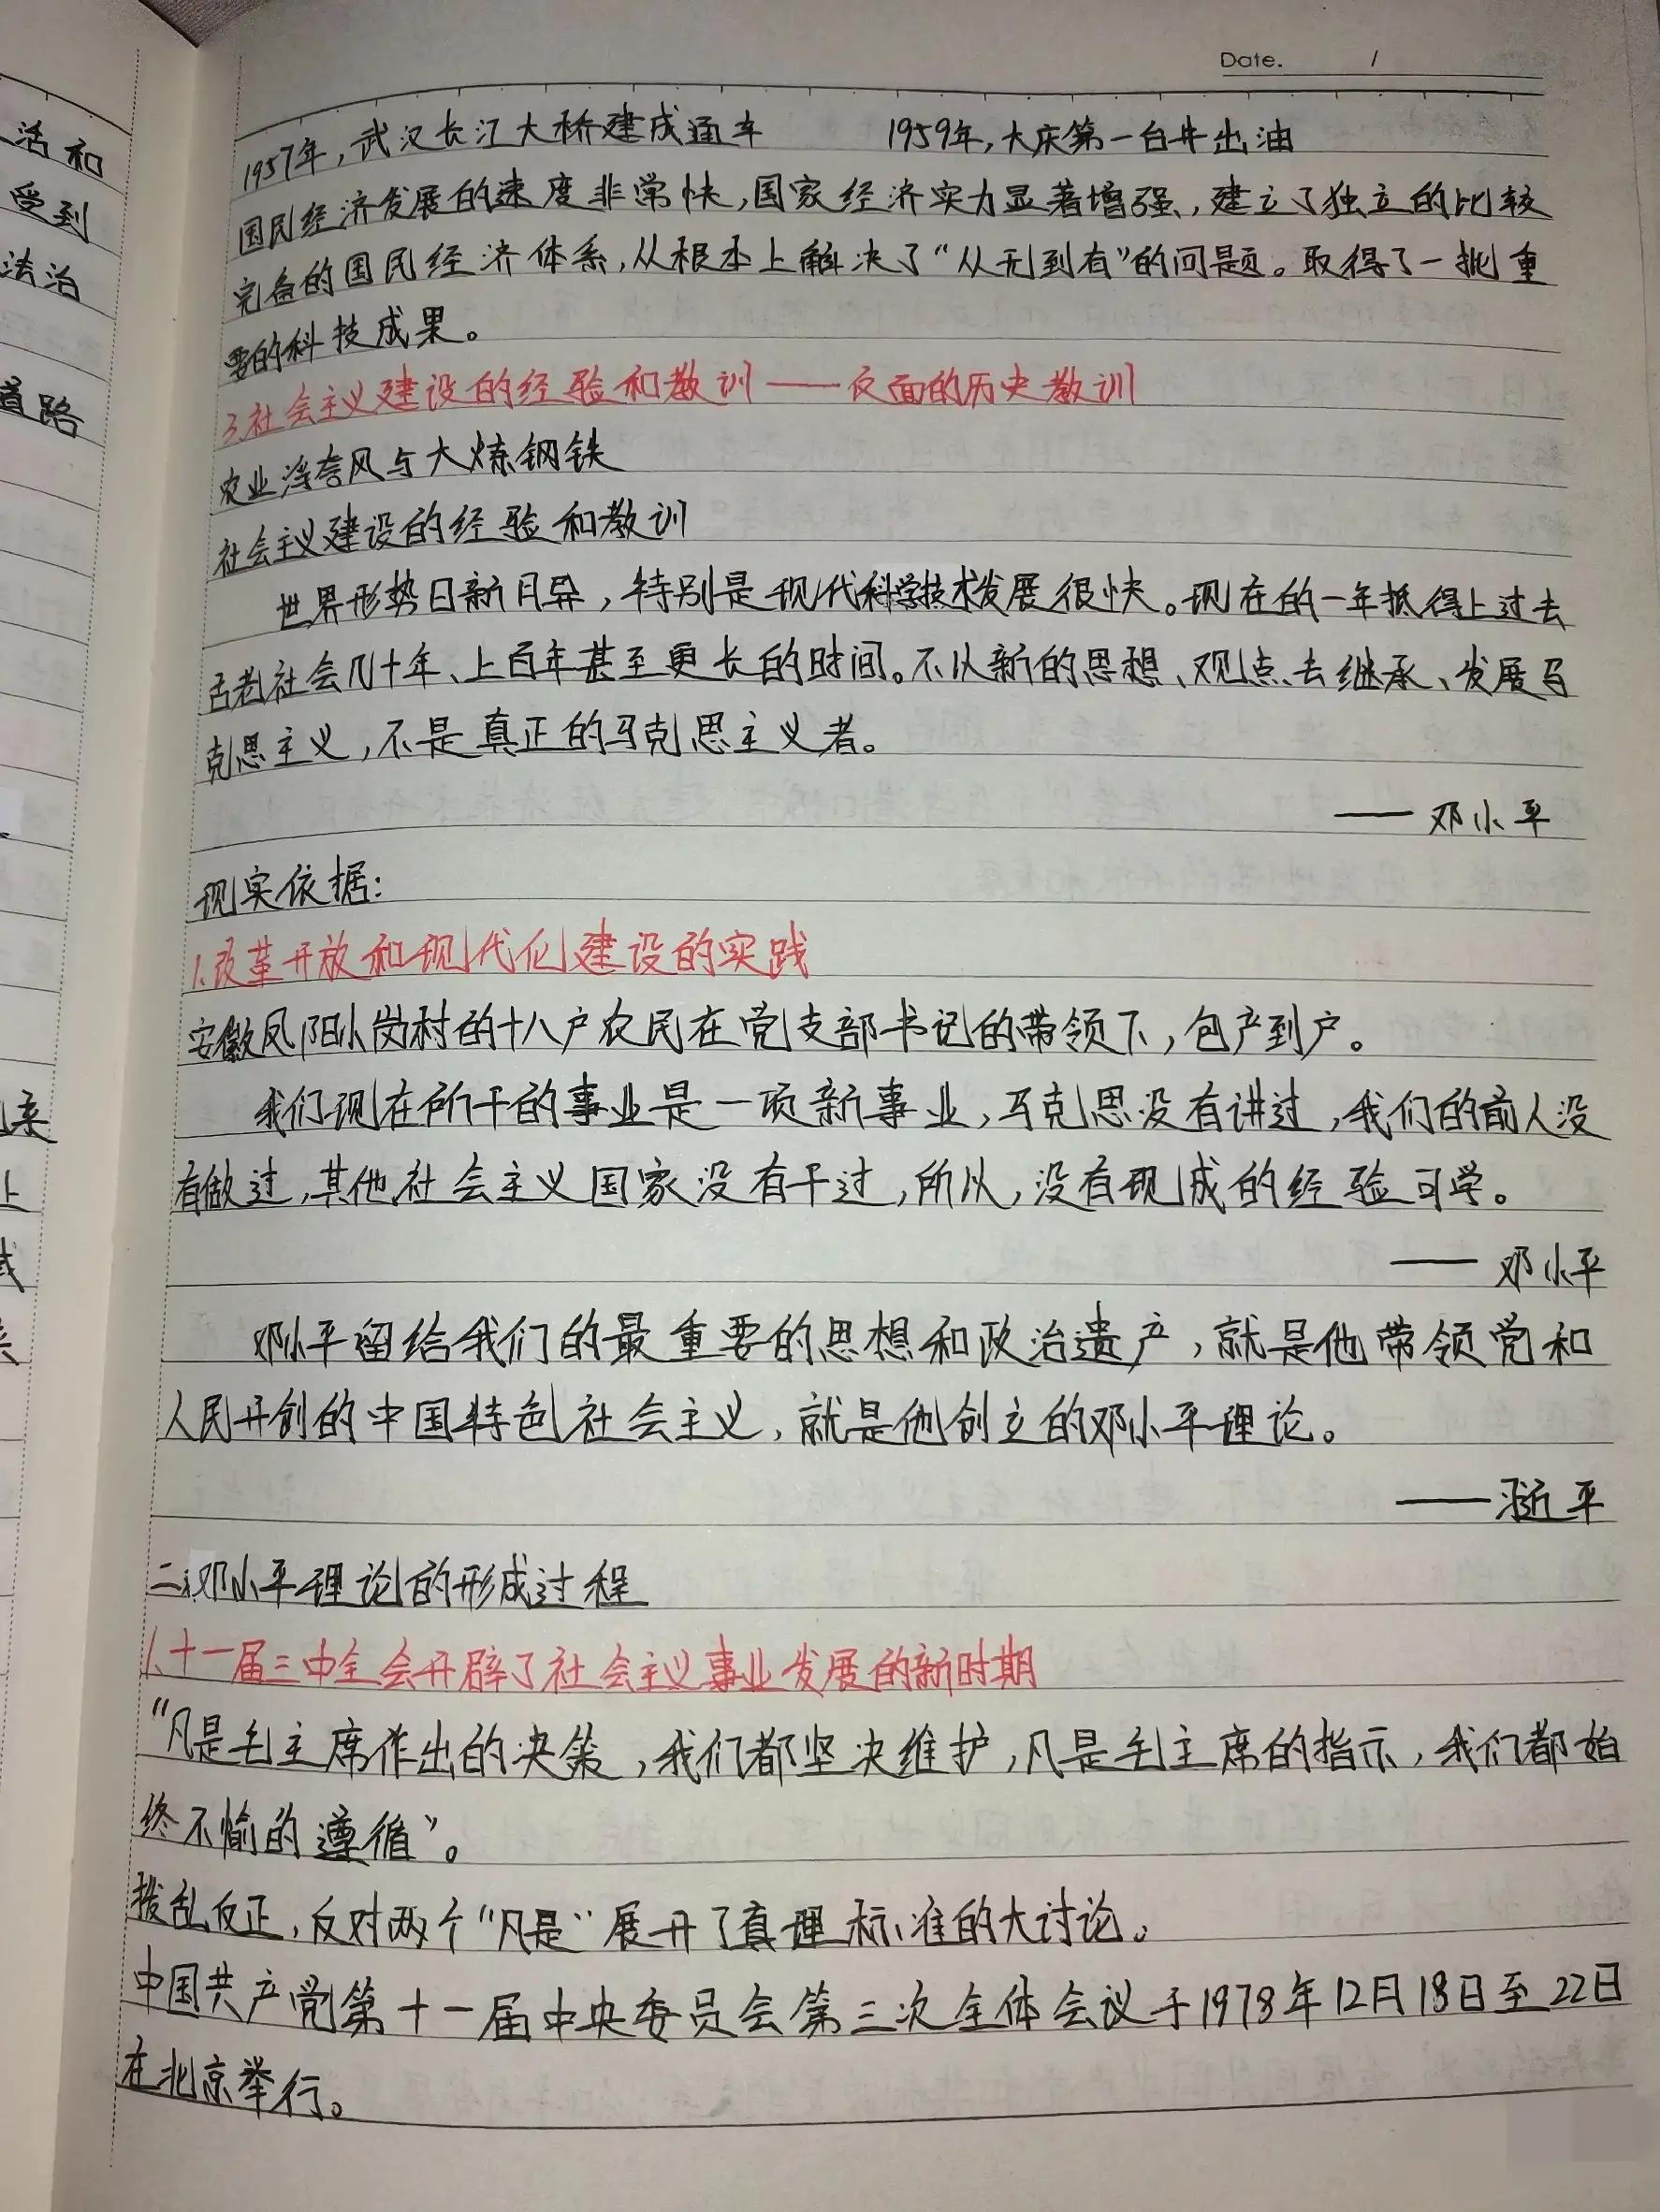 Date. /
活和
受到
法治
道路
系
上
1957年，武汉长江大桥建成通车 1959年，大庆第一台井出油
国民经济发展的速度非常快，国家经济实力显著增强、建立了独立的比较
完备的国民经济体系，从根本上解决了“从无到有”的问题。取得了一批重
要的科技成果。
3.社会主义建设的经验和教训——反面的历史教训
农业浮夸风与大炼钢铁
社会主义建设的经验和教训
世界形势日新月异，特别是现代科学技术发展很快。现在的一年抵得上过去
古老社会几十年、上百年甚至更长的时间。不以新的思想、观点去继承、发展马
克思主义，不是真正的马克思主义者。
——邓小平
现实依据：
1.改革开放和现代化建设的实践
安徽凤阳小岗村的十八户农民在党支部书记的带领下，包产到户。
我们现在所干的事业是一项新事业，马克思没有讲过，我们的前人没
有做过，其他社会主义国家没有干过，所以，没有现成的经验可学。
——邓小平
邓小平留给我们的最重要的思想和政治遗产，就是他带领党和
人民开创的中国特色社会主义，就是他创立的邓小平理论。
——习近平
二、邓小平理论的形成过程
1.十一届三中全会开辟了社会主义事业发展的新时期
“凡是毛主席作出的决策，我们都坚决维护，凡是毛主席的指示，我们都始
终不愉的遵循”。
拨乱反正，反对两个“凡是”展开了真理标准的大讨论。
中国共产党第十一届中央委员会第三次全体会议于1978年12月18日至22日
在北京举行。